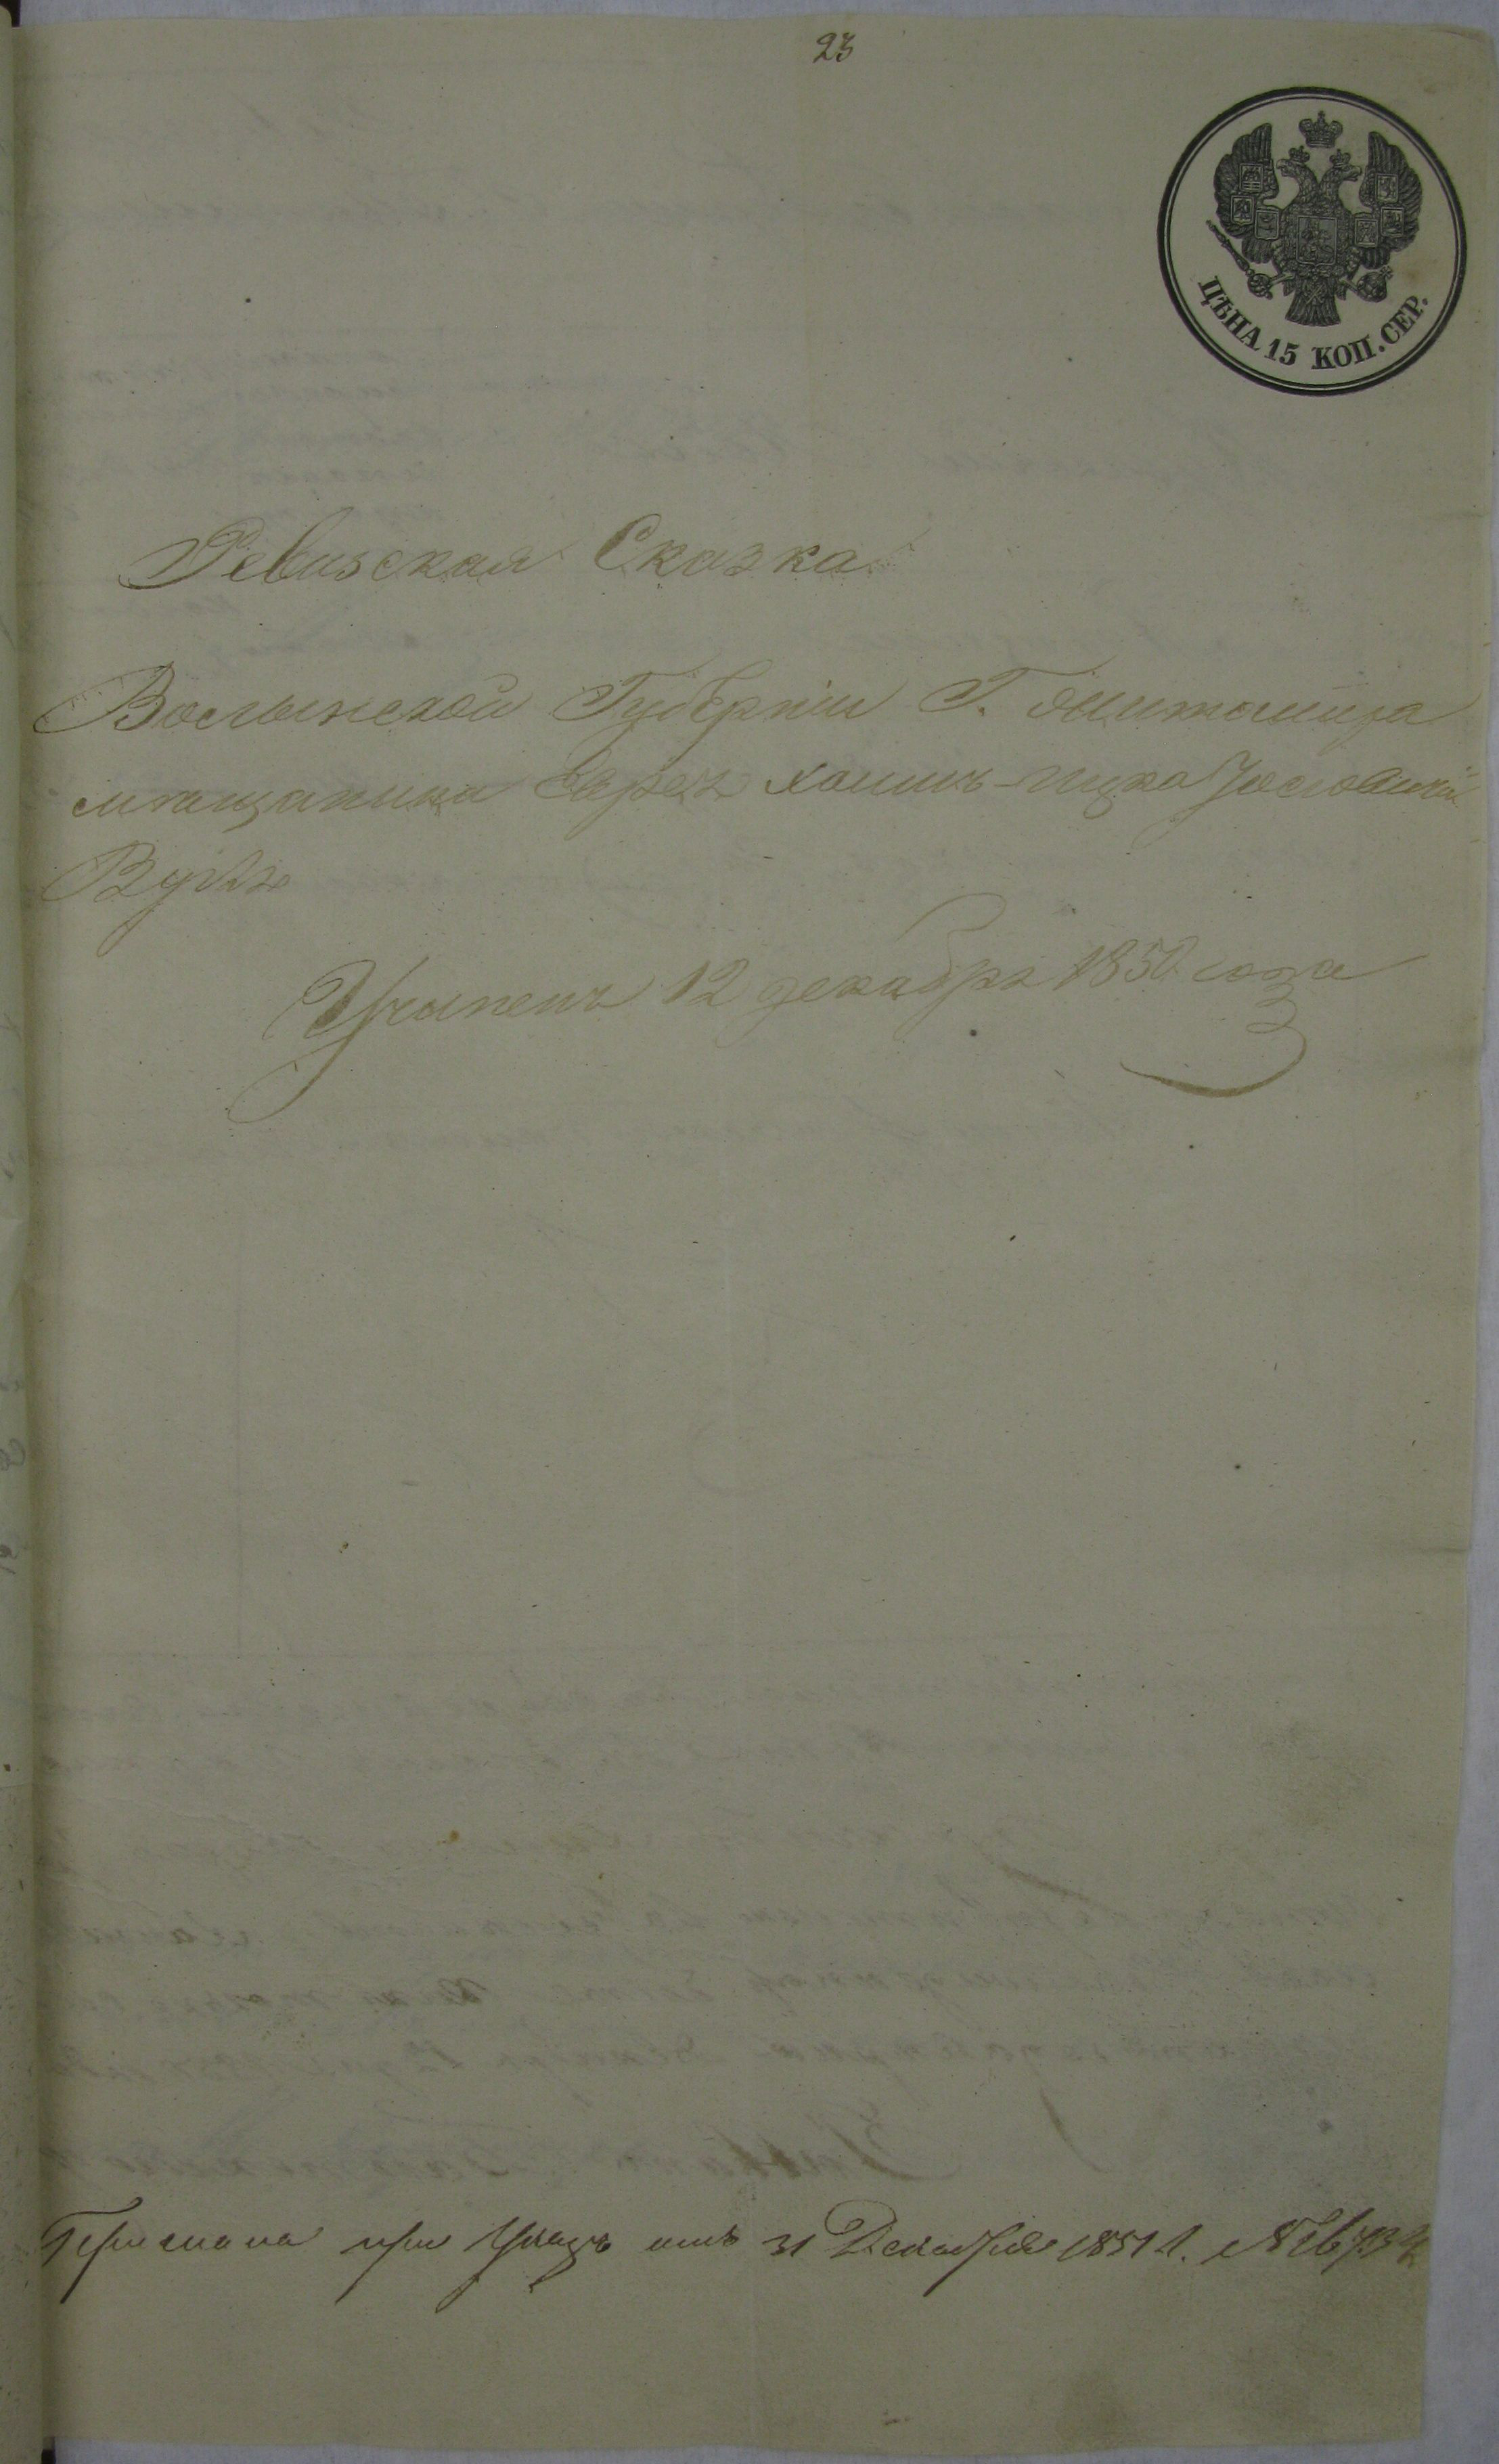 23
ЦѢНА 15 КОП. СЕР.
Ревизская Сказка
Волынской Губернiи Г. Житомира
мѣщанина Еврея Хаимъ-Ицка
Учинена 12 декабря 1850 года
при Указѣ отъ 31 Декабря 1851 г. №